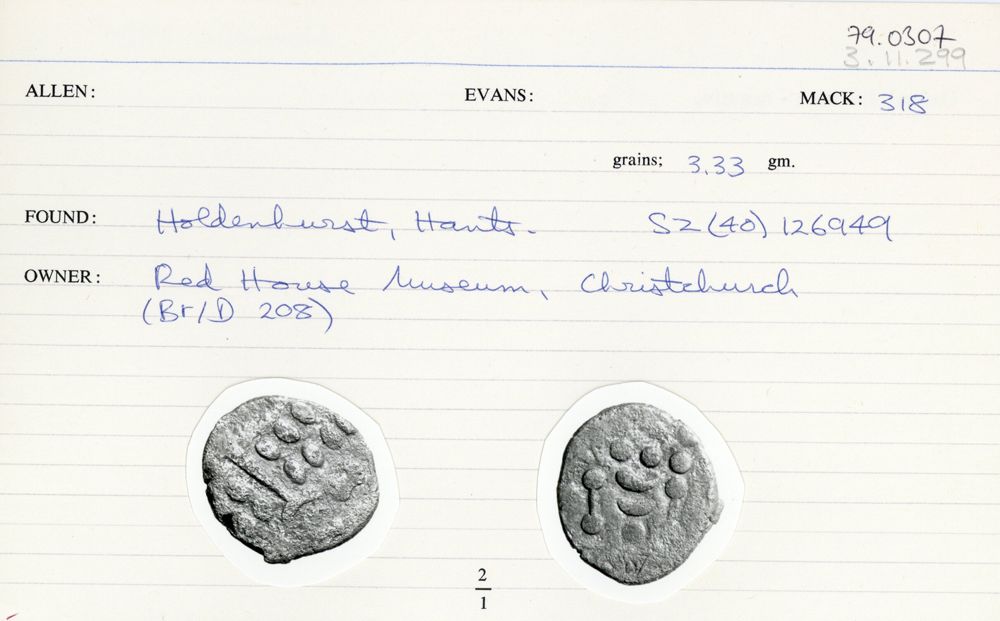 79.0307
3.11.299
ALLEN: EVANS: MACK: 318
grains; 3.33 gm.
FOUND: Holdenhurst, Hants. SZ(40)126949
OWNER: Red House Museum, Christchurch
(Br/D 208)
2
1